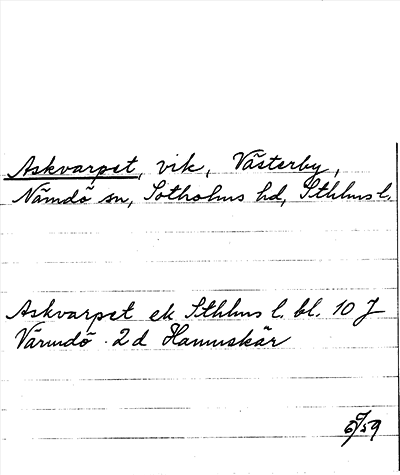 Askvarpet, vik, Västerby,
Nämdö sn, Sotholms hd, Sthlms l.
Askvarpet ek Sthlms l. bl. 10 J
Värmdö 2d Hamnskär